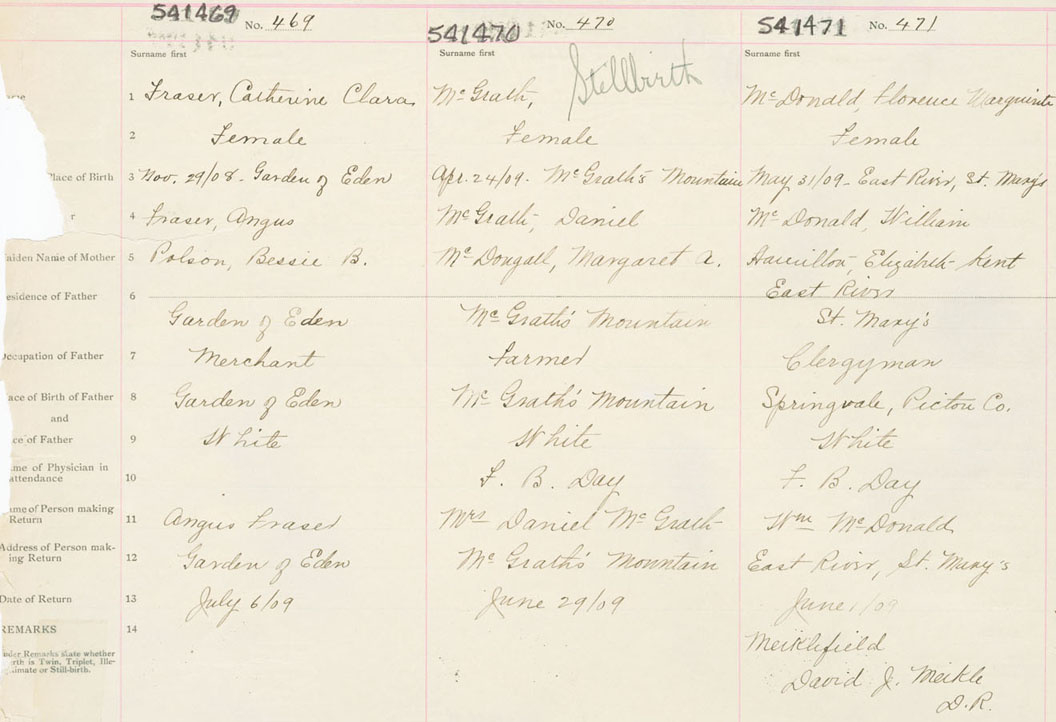 541469 No. 469
541470 No. 470
541471 No. 471
Surname first
Surname first
Surname first
Stillbirth
1 Fraser, Catherine Clara
McGrath,
McDonald, Florence Marguirite
2 Female
Female
Female
Place of Birth 3 Nov. 29/08 - Garden of Eden
Apr. 24/09 - McGrath's Mountain
May 31/09 - East River, St. Mary's
r 4 Fraser, Angus
McGrath, Daniel
McDonald, William
aiden Name of Mother 5 Polson, Bessie B.
McDougall, Margaret A.
Hamilton, Elizabeth Kent
esidence of Father 6 Garden of Eden
McGrath's Mountain
East River
St. Mary's
Occupation of Father 7 Merchant
Farmer
Clergyman
ace of Birth of Father 8 Garden of Eden
McGrath's Mountain
Springvale, Pictou Co.
and
ce of Father 9 White
White
White
ame of Physician in
attendance 10
F. B. Day
F. B. Day
ame of Person making
Return 11 Angus Fraser
Mrs Daniel McGrath
Wm McDonald
Address of Person mak-
ing Return 12 Garden of Eden
McGrath's Mountain
East River, St. Mary's
Date of Return 13 July 6/09
June 29/09
June 1/09
REMARKS 14
Meiklefield
David J. Meikle
D.R.
nder Remarks state whether
rth is Twin, Triplet, Ille-
gimate or Still-birth.